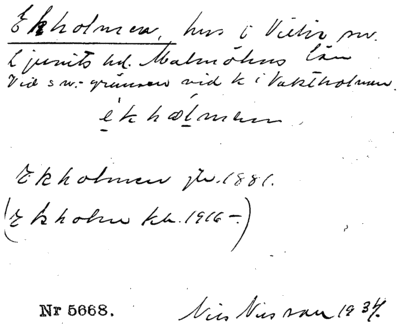 Ekholmen, hus i Vittsr sn.
Ljunits hd. Malmöhus län
Vid s v.-gränsen vid k i Vaksholmen.
èkhωlmen
Ekholmen jb. 1881.
(Ekholm kb. 1916–)
Nr 5668. Nils Nilsson 1934.